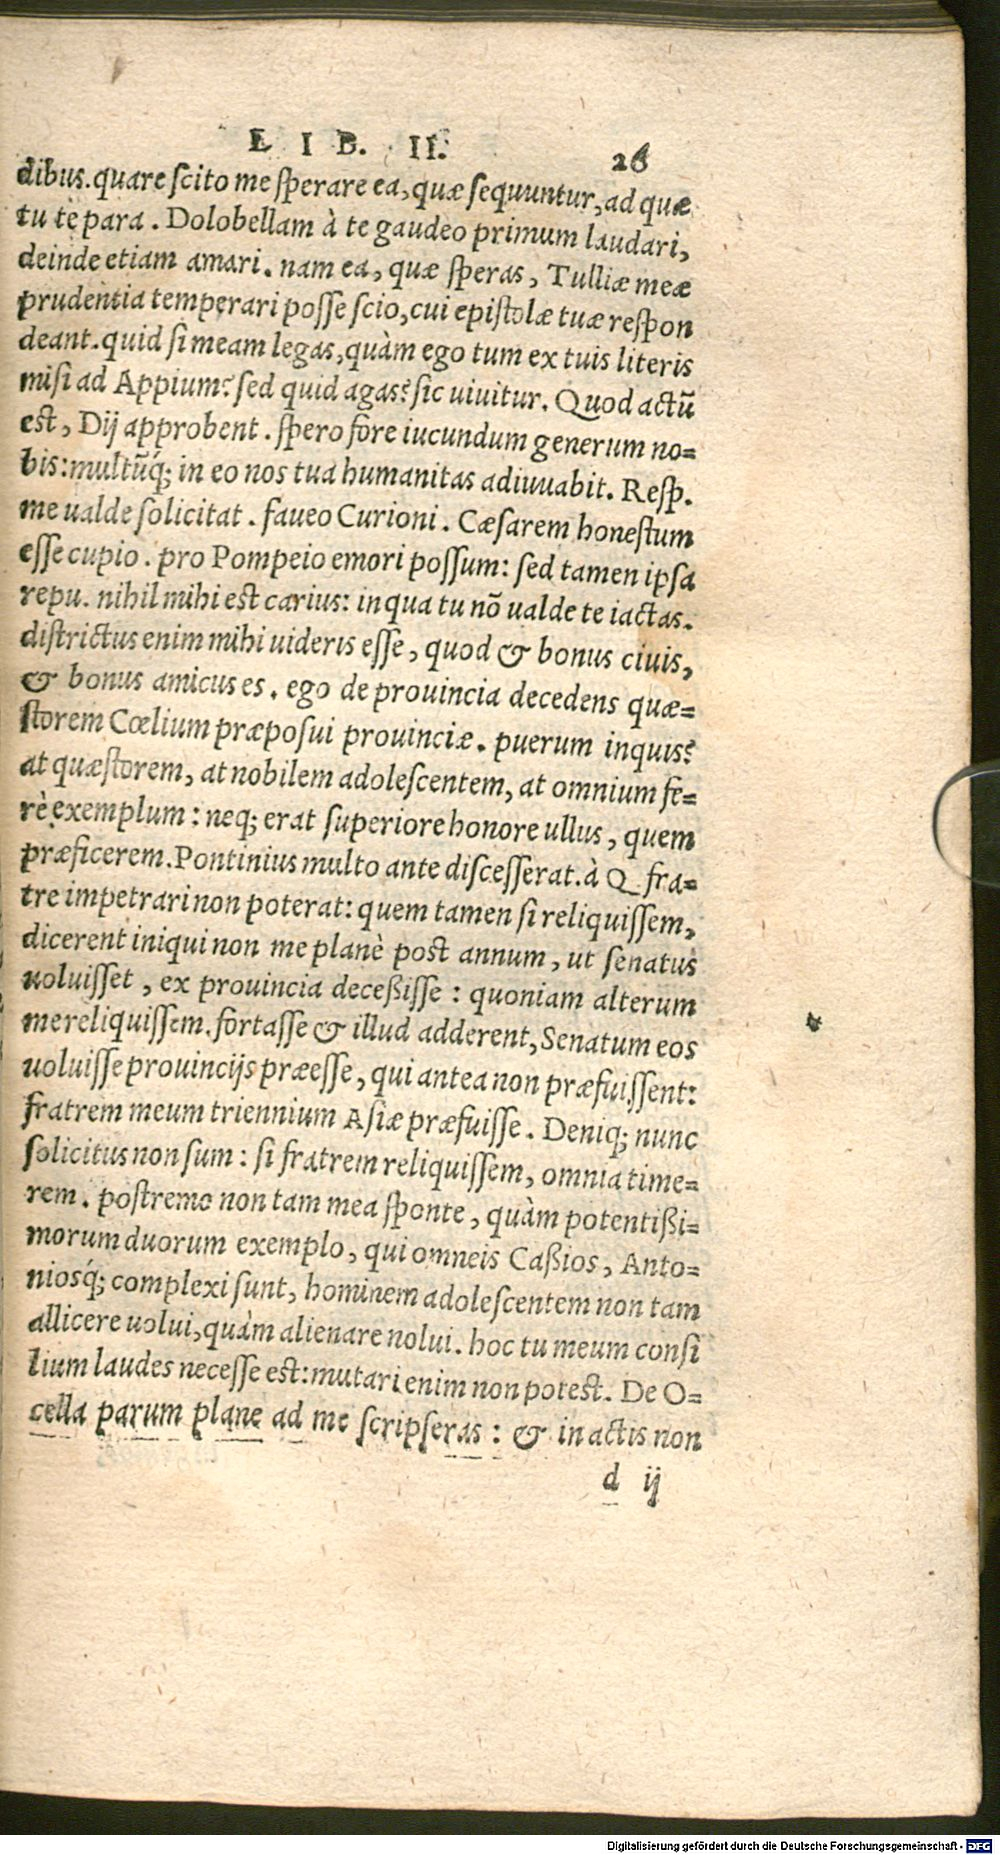 L I B. II. 28
dibus. quare scito me sperare ea, quæ sequuntur, ad quæ
tu te para. Dolobellam à te gaudeo primum laudari,
deinde etiam amari. nam ea, quæ speras, Tulliæ meæ
prudentia temperari posse scio, cui epistolæ tuæ respon
deant. quid si meam legas, quàm ego tum ex tuis literis
misi ad Appium? sed quid agas? sic uiuitur. Quod actũ
est, Dij approbent. spero fore iucundum generum no=
bis: multũq́; in eo nos tua humanitas adiuuabit. Resp.
me ualde solicitat. faueo Curioni. Cæsarem honestum
esse cupio. pro Pompeio emori possum: sed tamen ipsa
repu. nihil mihi est carius: in qua tu nõ ualde te iactas.
districtus enim mihi uideris esse, quod & bonus ciuis,
& bonus amicus es. ego de prouincia decedens quæ=
storem Cœlium præposui prouinciæ. puerum inquis?
at quæstorem, at nobilem adolescentem, at omnium fe=
rè exemplum: neq; erat superiore honore ullus, quem
præficerem. Pontinius multo ante discesserat. à Q. fra=
tre impetrari non poterat: quem tamen si reliquissem,
dicerent iniqui non me planè post annum, ut senatus
uoluisset, ex prouincia deceßisse: quoniam alterum
me reliquissem. fortasse & illud adderent, Senatum eos
uoluisse prouincijs præesse, qui antea non præfuissent:
fratrem meum triennium Asiæ præfuisse. Deniq; nunc
solicitus non sum: si fratrem reliquissem, omnia time=
rem. postremo non tam mea sponte, quàm potentißi=
morum duorum exemplo, qui omneis Caßios, Anto=
niosq́; complexi sunt, hominem adolescentem non tam
allicere uolui, quàm alienare nolui. hoc tu meum consi
lium laudes necesse est: mutari enim non potest. De O=
cella parum plane ad me scripseras: & in actis non
d ij
Digitalisierung gefördert durch die Deutsche Forschungsgemeinschaft - DFG